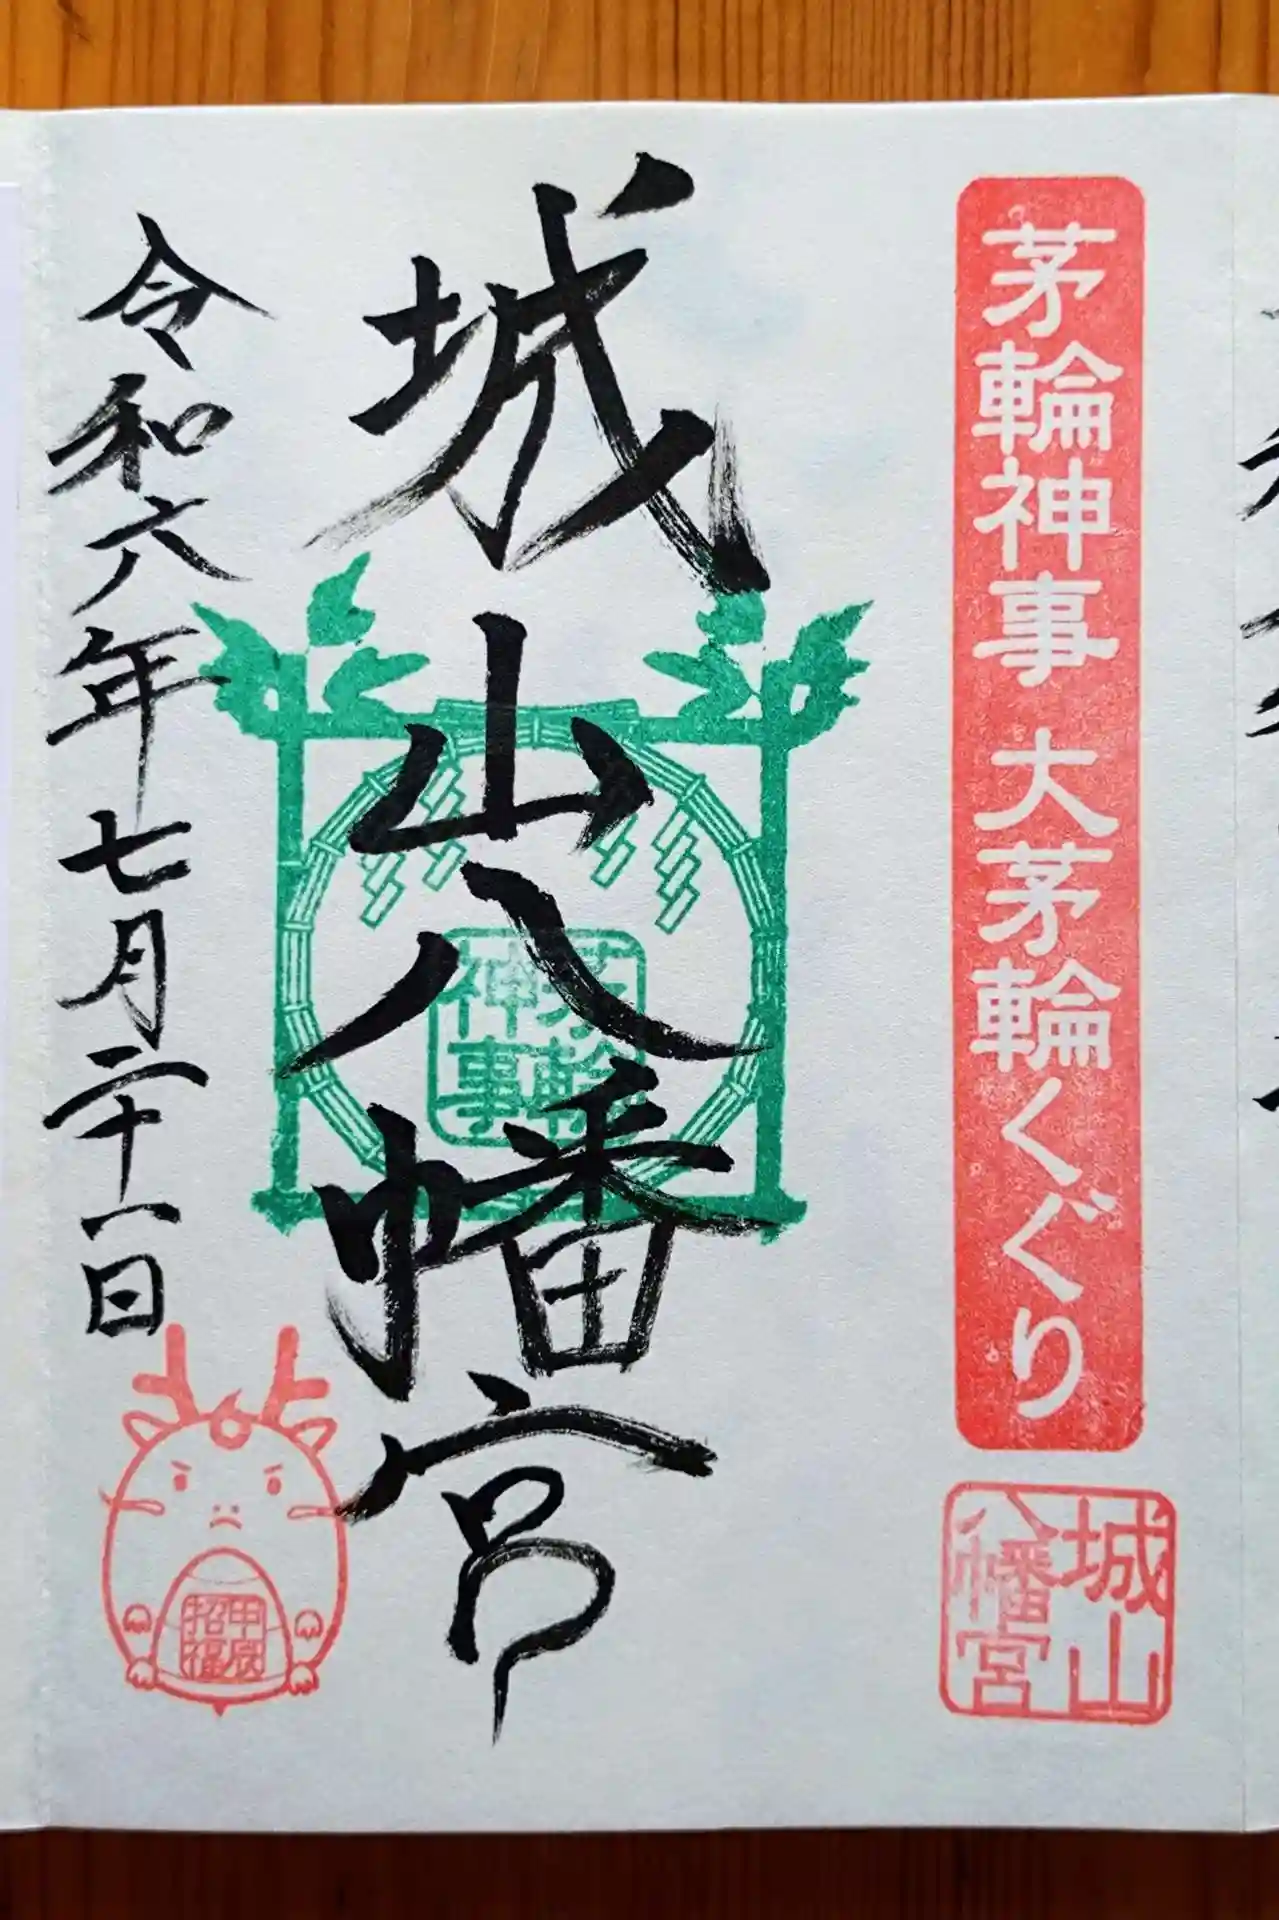 茅輪神事 大茅輪くぐり
城山
八幡宮
城山八幡宮
茅輪
神事
令和六年七月二十一日
甲辰
招福